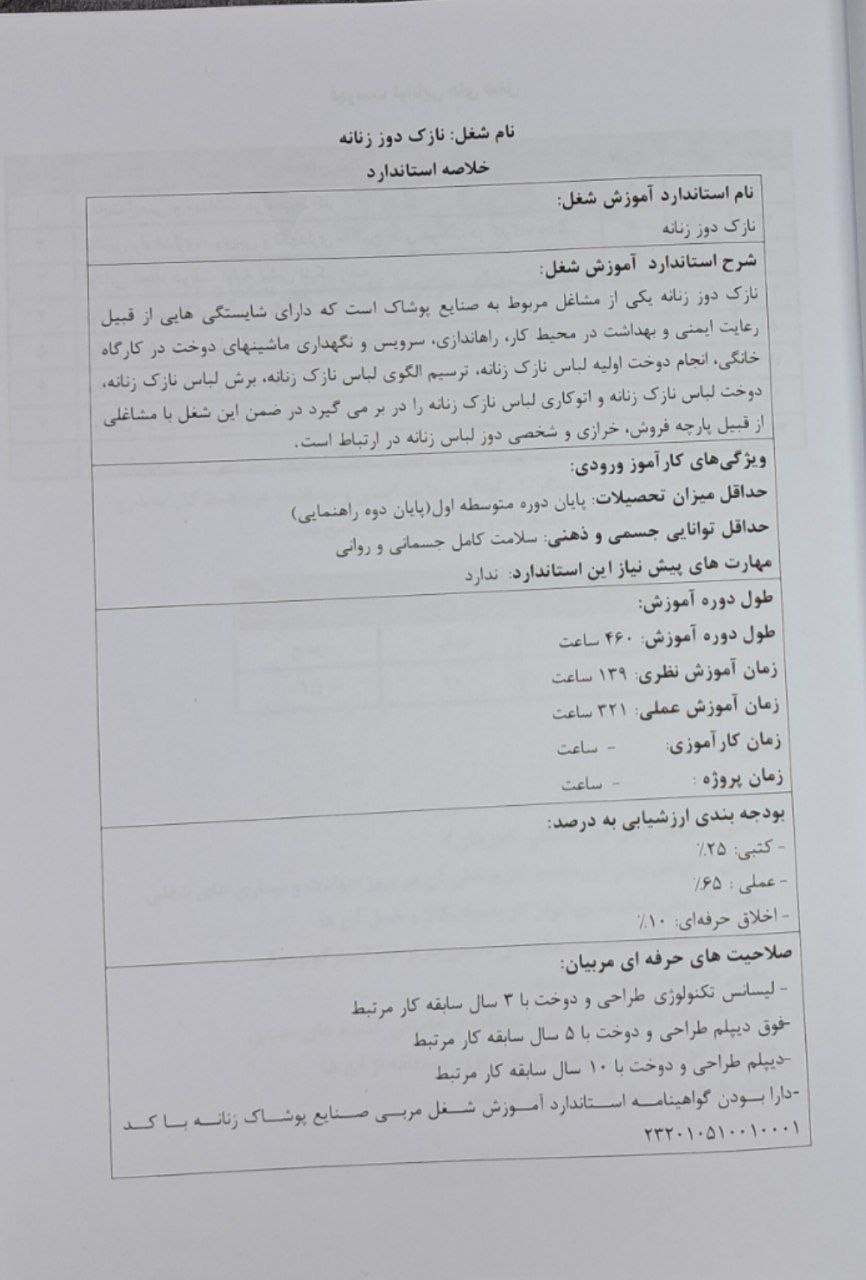 نام شغل: نازک دوز زنانه
خلاصه استاندارد
نام استاندارد آموزش شغل:
نازک دوز زنانه
شرح استاندارد آموزش شغل:
نازک دوز زنانه یکی از مشاغل مربوط به صنایع پوشاک است که دارای شایستگی هایی از قبیل
رعایت ایمنی و بهداشت در محیط کار، راهاندازی، سرویس و نگهداری ماشینهای دوخت در کارگاه
خانگی، انجام دوخت اولیه لباس نازک زنانه، ترسیم الگوی لباس نازک زنانه، برش لباس نازک زنانه،
دوخت لباس نازک زنانه و اتوکاری لباس نازک زنانه را در بر می گیرد در ضمن این شغل با مشاغلی
از قبیل پارچه فروش، خرازی و شخصی دوز لباس زنانه در ارتباط است.
ویژگی‌های کارآموز ورودی:
حداقل میزان تحصیلات: پایان دوره متوسطه اول(پایان دوه راهنمایی)
حداقل توانایی جسمی و ذهنی: سلامت کامل جسمانی و روانی
مهارت های پیش نیاز این استاندارد: ندارد
طول دوره آموزش:
طول دوره آموزش: ۴۶۰ ساعت
زمان آموزش نظری: ۱۳۹ ساعت
زمان آموزش عملی: ۳۲۱ ساعت
زمان کارآموزی: - ساعت
زمان پروژه : - ساعت
بودجه بندی ارزشیابی به درصد:
- کتبی: ۲۵٪
- عملی : ۶۵٪
- اخلاق حرفه‌ای: ۱۰٪
صلاحیت های حرفه ای مربیان:
- لیسانس تکنولوژی طراحی و دوخت با ۳ سال سابقه کار مرتبط
-فوق دیپلم طراحی و دوخت با ۵ سال سابقه کار مرتبط
-دیپلم طراحی و دوخت با ۱۰ سال سابقه کار مرتبط
-دارا بودن گواهینامه استاندارد آموزش شغل مربی صنایع پوشاک زنانه با کد
۲۳۲۰۱۰۵۱۰۰۱۰۰۰۱